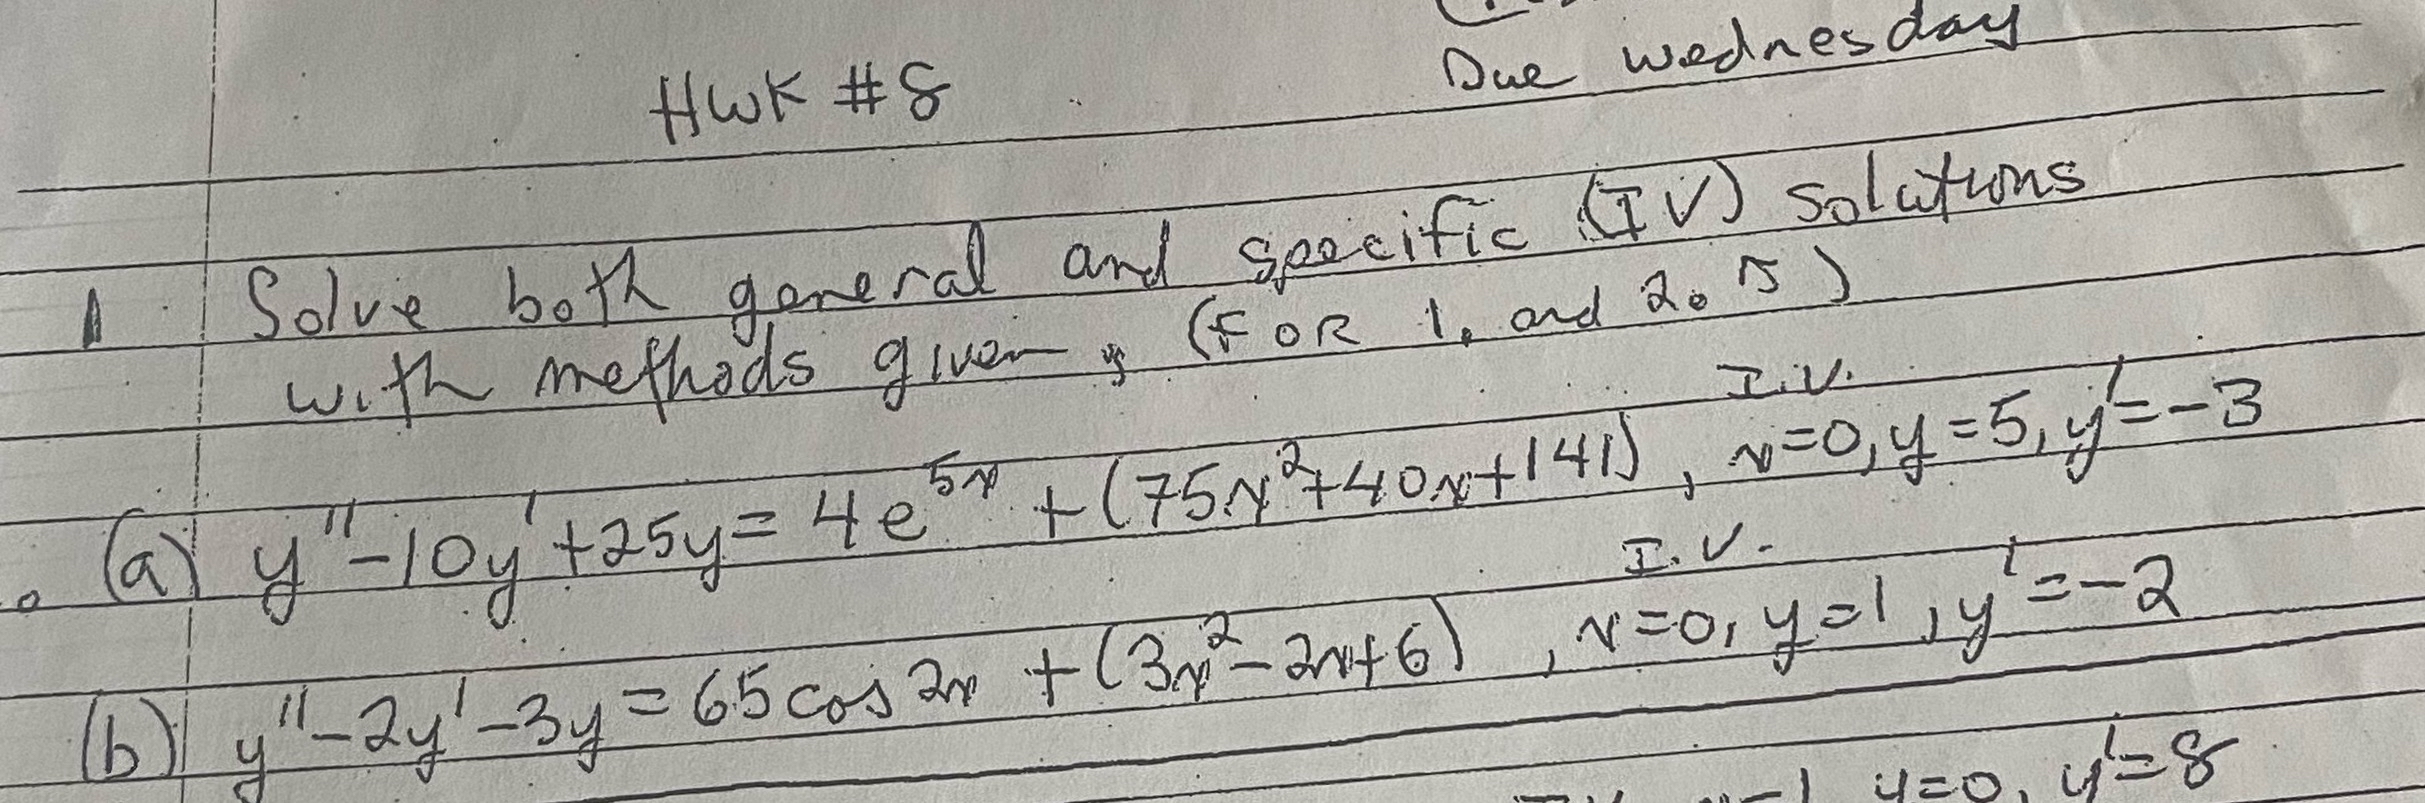 Due wednesday
HWK #8
1 Solve both general and specific (IV) solutions
with methods given, (FOR 1. and 2. 5)
I.V.
(a) y''-10y'+25y=4e^5x +(75x²+40x+141), x=0, y=5, y'=-3
I.V.
(b) y''-2y'-3y=65cos2x +(3x²-2x+6), x=0, y=1, y'=-2
y=0, y'=8